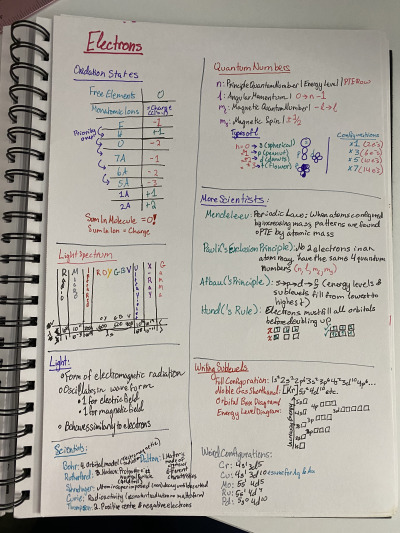 Electrons
Oxidation States
Free Elements 0
Monatomic Ions = Charge
F -1
H +1
Priority over
O -2
7A -1
6A -2
5A -3
1A +1
2A +2
Sum In Molecule = 0!
Sum In Ion = Charge
Light Spectrum
Radio
Micro
Infrared
ROYGBV
Ultraviolet
X-Ray
Gamma
Light:
Form of electromagnetic radiation
Oscillates in wave form
1 for electric field
1 for magnetic field
Behaves similarly to electrons
Scientists:
Bohr: Orbital model
Dalton:
Rutherford:
Schrodinger:
Curie: Radioactivity
Thompson: Positive center & negative electrons
Quantum Numbers
n: Principle Quantum Number | Energy Level | PTE Row
l: Angular Momentum | 0→n-1
ml: Magnetic Quantum Number | -l→l
ms: Magnetic Spin | ±1/2
Types of l
s (spherical)
p (peanut)
d (donuts)
f (flower)
Configurations
x1 (2e)
x3 (6e)
x5 (10e)
x7 (14e)
More Scientists:
Mendeleev: Periodic Law; When atoms configured
by increasing mass, patterns are found
PTE by atomic mass
Pauli's Exclusion Principle: No 2 electrons in an
atom may have the same 4 quantum
numbers (n, l, ml, ms)
Afbau('s Principle): s→p→d→f (energy levels &
sublevels fill from lowest to
highest)
Hund('s Rule): Electrons must fill all orbitals
before doubling up
Writing Sublevels
Full Configuration: 1s²2s²2p⁶3s²3p⁶4s²3d¹⁰4p⁶...
Noble Gas Shorthand: [Kr] 5s²4d¹⁰ etc.
Orbital Box Diagram
Energy Level Diagram:
Weird Configurations:
Cr: 4s¹3d5
Cu: 4s¹3d10
Mo: 5s¹4d5
Ru: 5s¹4d7
Pd: 5s⁰4d10